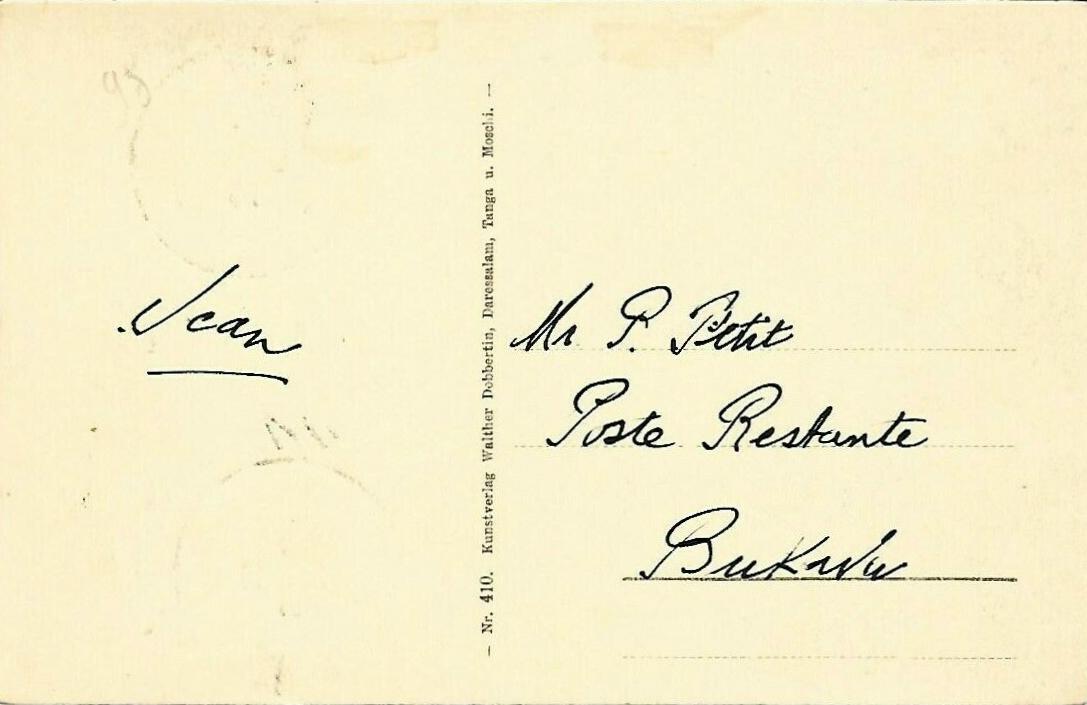 Jean
- Nr. 410. Kunstverlag Walther Dobbertin, Daressalam, Tanga u. Moschi. -
Mr P. Petit
Poste Restante
Bukavu